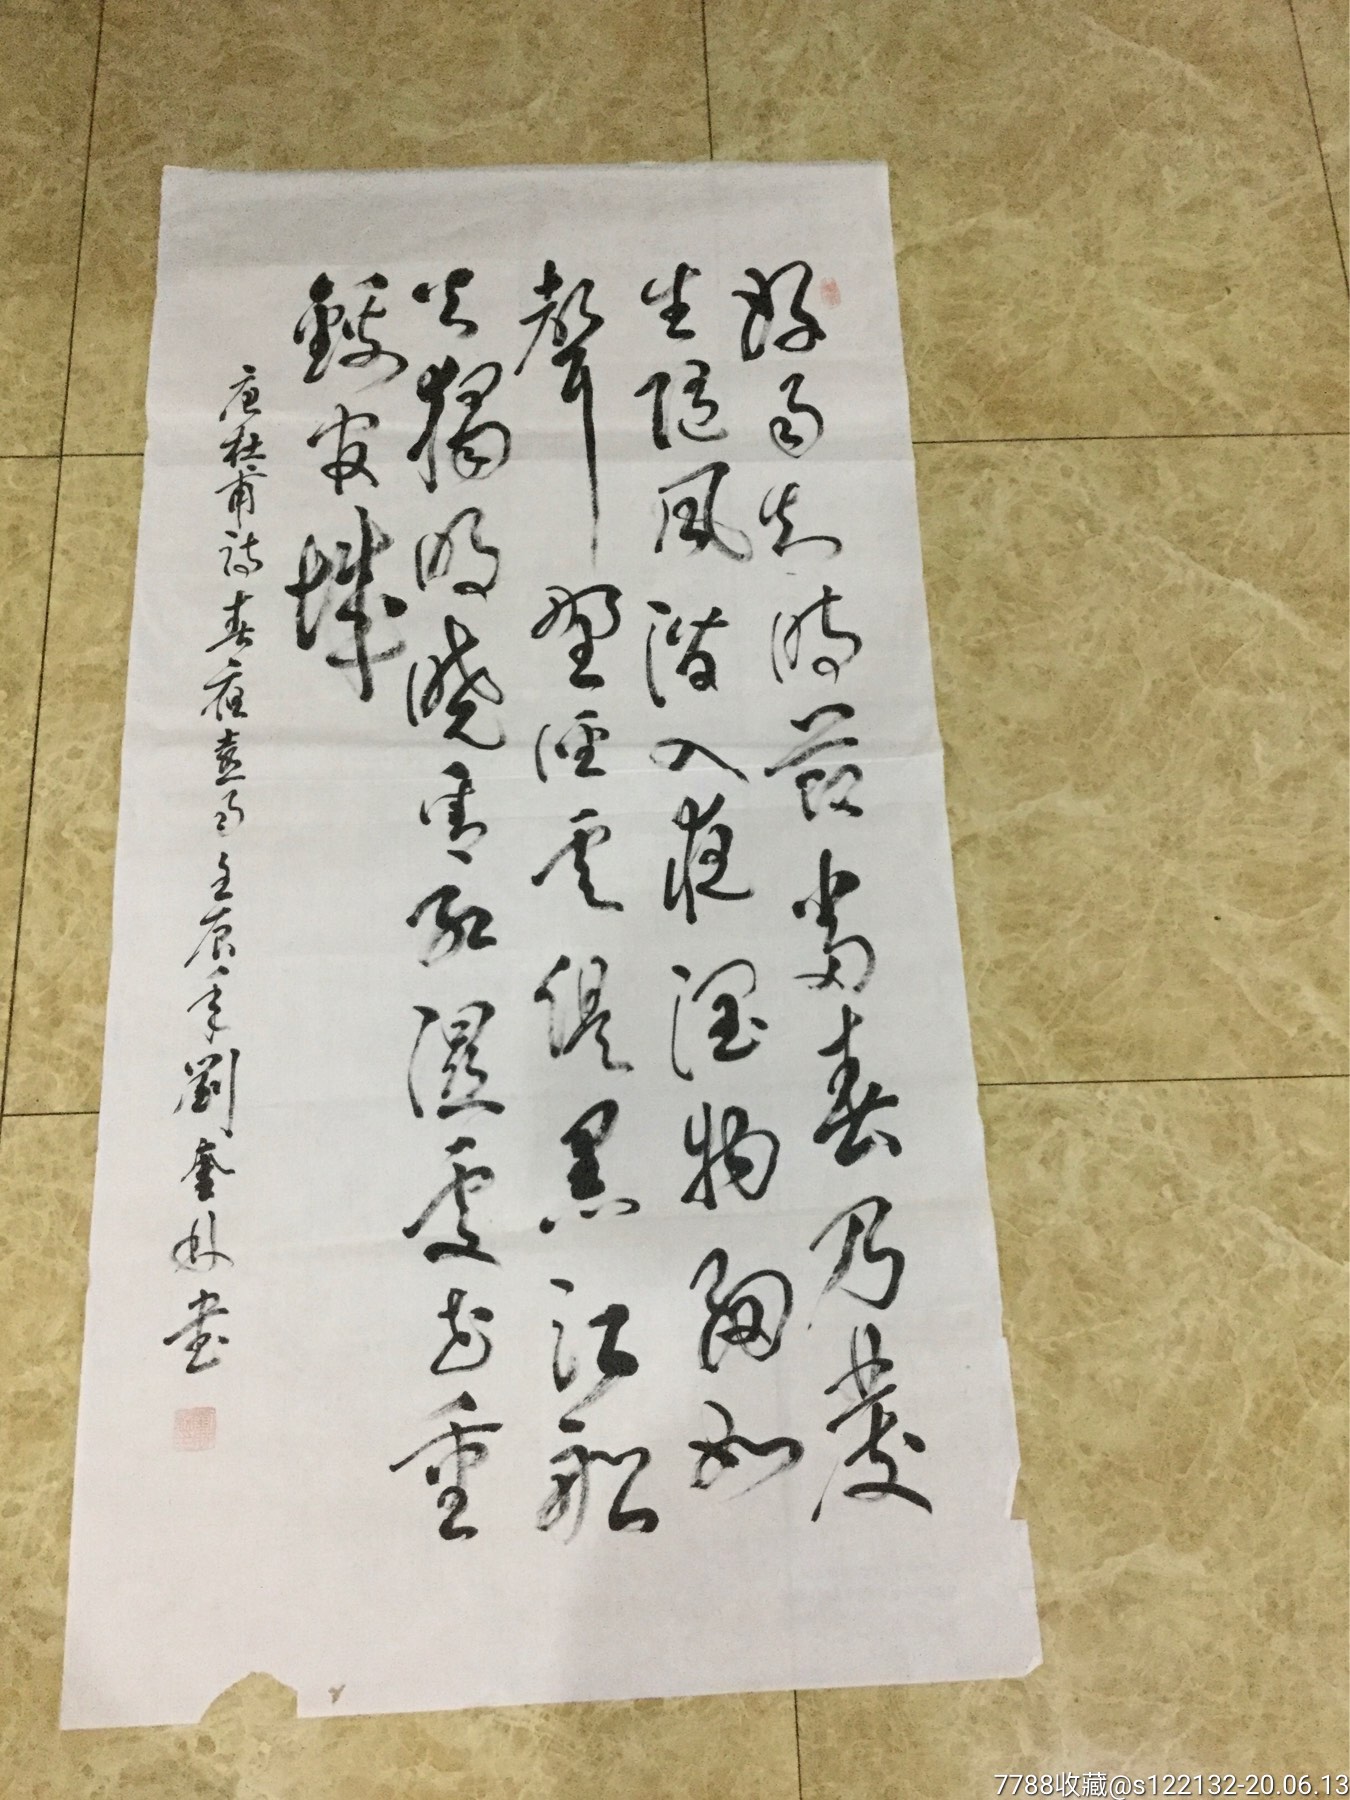 好雨知時節當春乃發
生隨風潛入夜潤物細如
聲野徑雲俱黑江船
火獨明曉看紅濕處花重
錦官城
唐杜甫詩春夜喜雨壬辰年劉奎林書
7788收藏@s122132-20.06.13